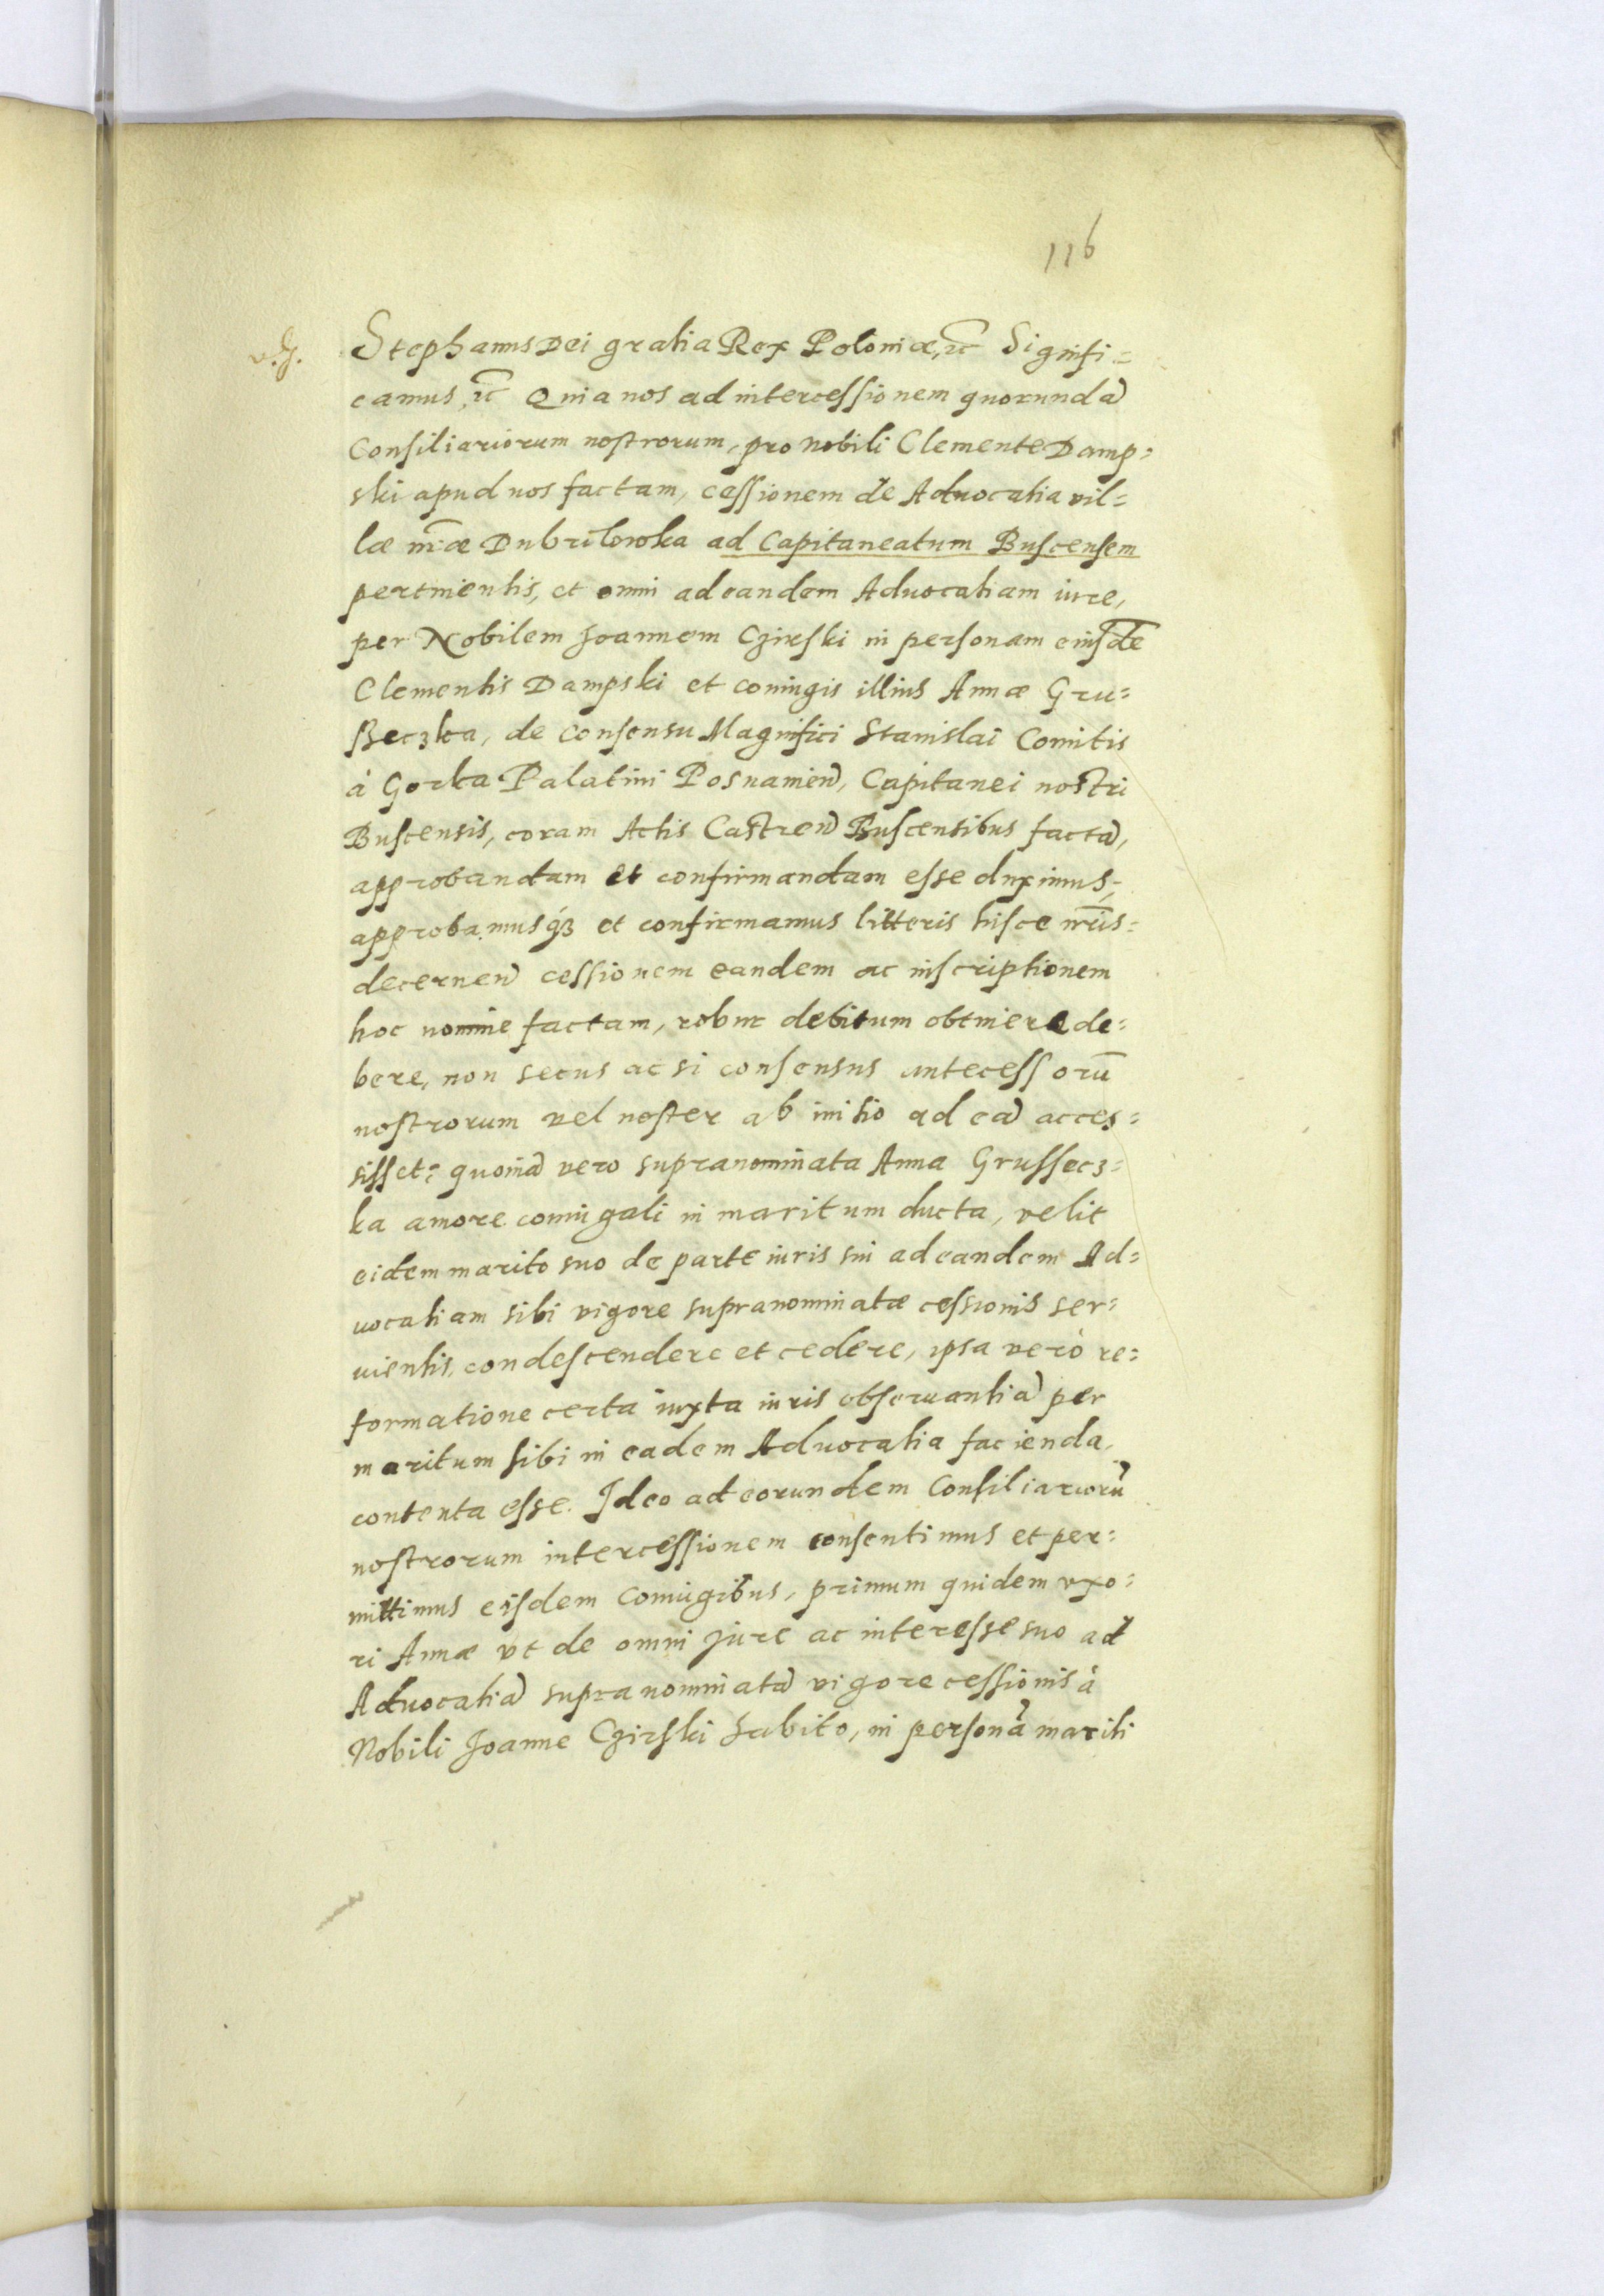 116
Stephanus Dei gratia Rex Poloniæ, etc̃ Signifi=
camus, etc̃ Quia nos ad intercessionem quorundã
Consiliariorum nostrorum, pro Nobili Clemente Damp=
ski apud nos factam, cessionem de Aduocatia vil=
læ nr̃æ Dubrilowka ad Capitaneatum Buscensem
pertinentis, et omni ad eandem Aduocatiam iure,
per Nobilem Joannem Czirski in personam eiusdẽ
Clementis Dampski et coniugis illius Annæ Gru=
ßeczka, de consensu Magnifici Stanislai Comitis
à Gorka Palatini Posnanieñ, Capitanei nostri
Buscensis, coram Actis Castreñ Buscensibus factã,
approbandam et confirmandam esse duximus;
approbamusq́ꝫ et confirmamus litteris hisce nr̃is=
decerneñ cessionem eandem ac inscriptionem
hoc nomine factam, robur debitum obtinere de=
bere, non secus ac si consensus antecessorũ
nostrorum vel noster ab initio ad eã acces=
sisset: quoniã vero supranominata Anna Grussecz=
ka amore coniugali in maritum ducta, velit
eidem marito suo de parte iuris sui ad eandem Ad=
uocatiam sibi vigore supranominatæ cessionis ser=
uientis, condescendere et cedere, ipsa verò re=
formatione certa iuxta iuris obseruantiã per
maritum sibi in eadem Aduocatia facienda,
contenta esse. Ideo ad eorundem Consiliariorũ
nostrorum intercessionem consentimus et per=
mittimus eisdem Coniugibus, primum quidem vxo=
ri Annæ vt de omni jure ac interesse suo ad
Aduocatiã supranominatã vigore cessionis à
Nobili Joanne Czirski habito, in personã mariti